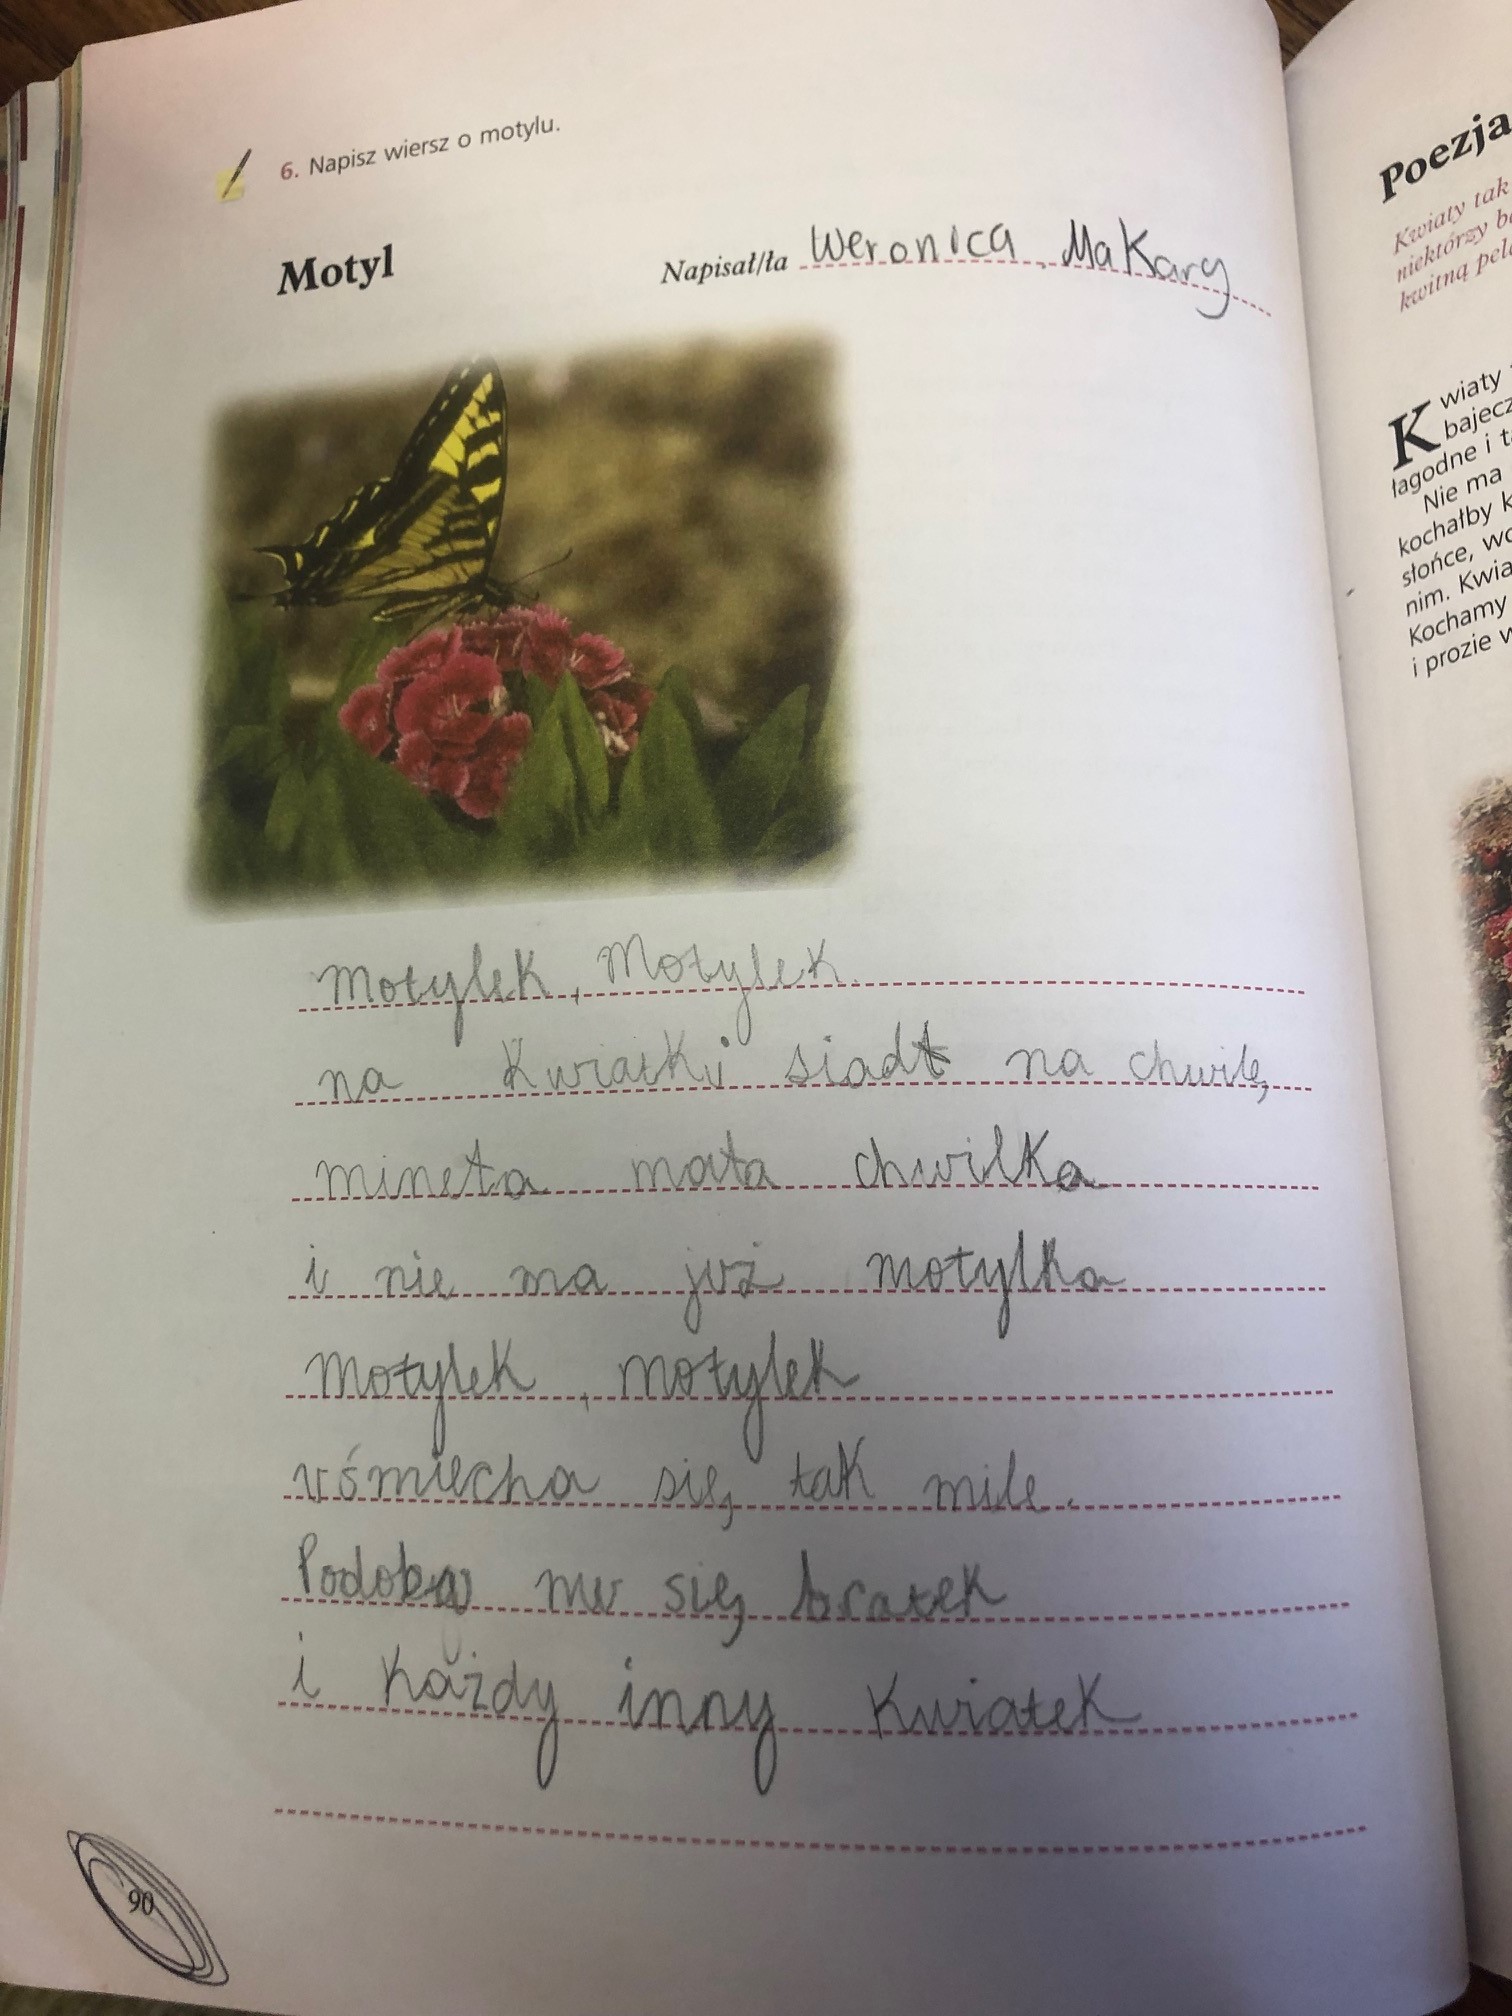 6. Napisz wiersz o motylu.
Motyl
Napisał/ła Weronica, Makary
Motylek, Motylek.
na kwiatki siadł na chwilę
mineła mała chwilka
i nie ma już motylka
Motylek, motylek
uśmiecha się tak mile.
Podoba mu się bratek
i każdy inny kwiatek
90
Poezja
Kwiaty tak
niektórzy
kwitną
Kwiaty
łagodne i
Nie ma
kochałby
słońce,
nim.
Kochamy
i prozie